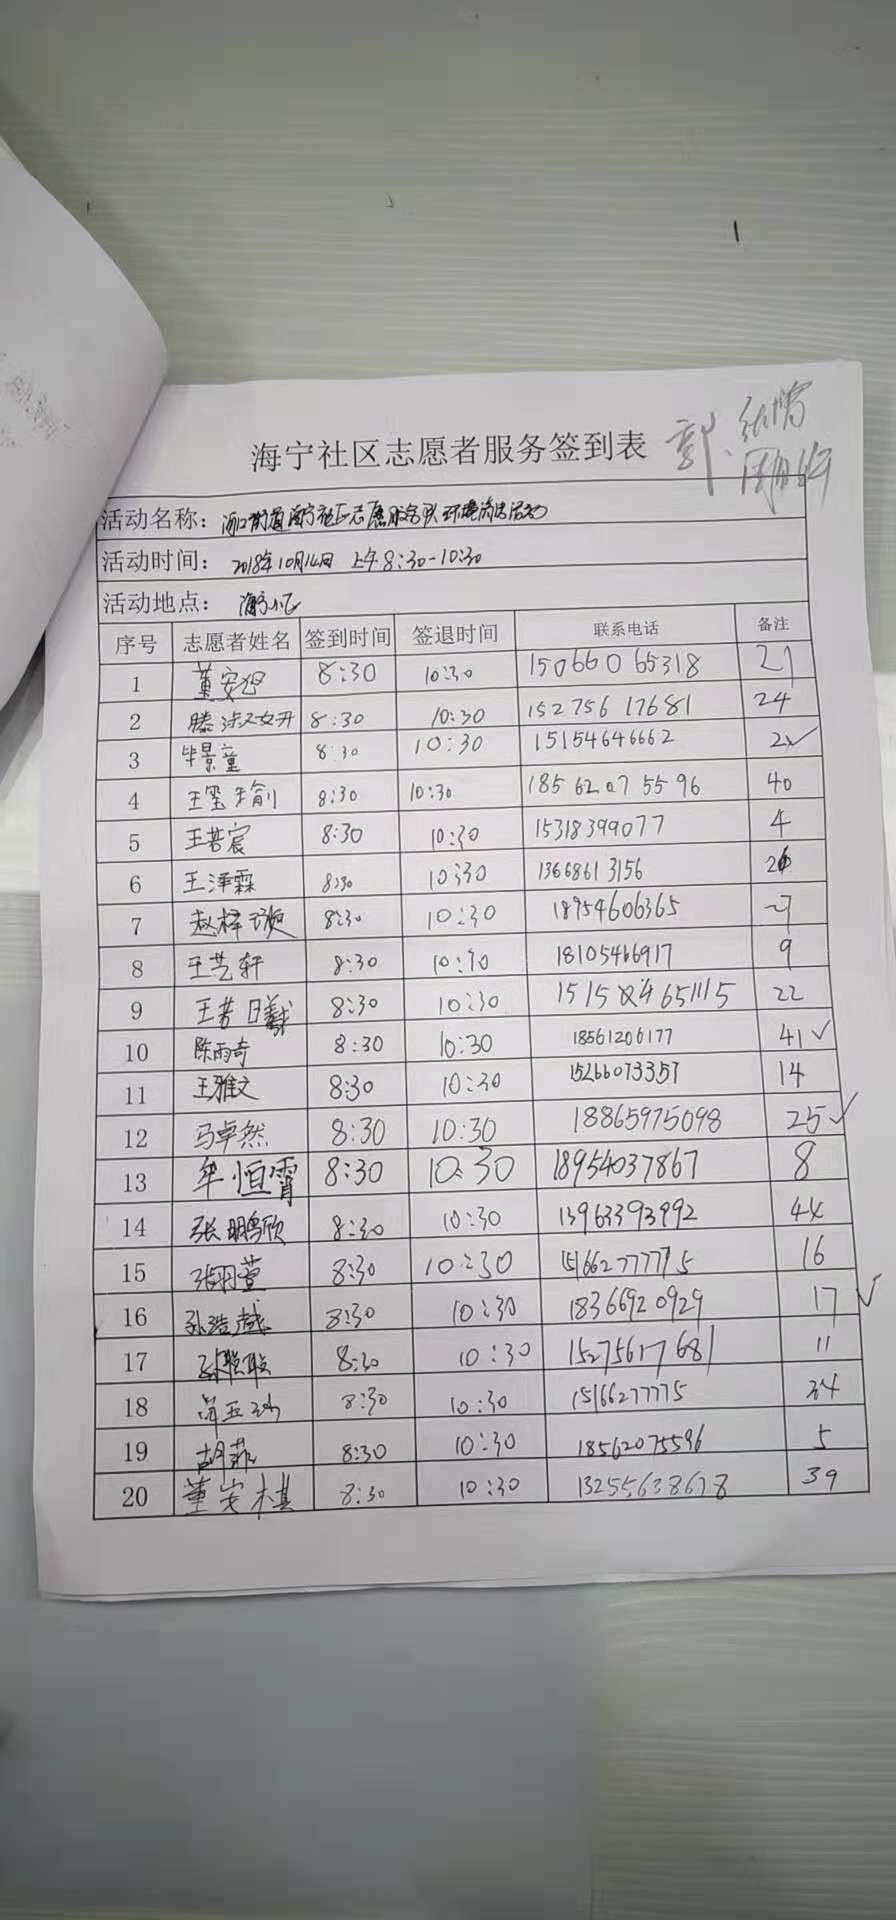 海宁社区志愿者服务签到表 郭、张
活动名称：河口街道海宁社区志愿服务队环境清洁活动
活动时间：2018年10月14日 上午8:30-10:30
活动地点：海宁小区
序号 志愿者姓名 签到时间 签退时间 联系电话 备注
1 董安 8:30 10:30 15066065318 21
2 滕 8:30 10:30 15275617681 24
3 毕景童 8:30 10:30 15154646662 2 ✓
4 王玺 8:30 10:30 18562075596 40
5 王若宸 8:30 10:30 15318399077 4
6 王泽霖 8:30 10:30 13668613156 26
7 赵梓璇 8:30 10:30 18954606365
8 王艺轩 8:30 10:30 18105466917 9
9 王若曦 8:30 10:30 22
10 陈雨奇 8:30 10:30 18561206177 41 ✓
11 王雅文 8:30 10:30 15266073357 14
12 马卓然 8:30 10:30 18865975098 25 ✓
13 牟恒霄 8:30 10:30 18954037867 8
14 张鹏欣 8:30 10:30 13963393992 44
15 张羽萱 8:30 10:30 16
16 孙浩越 8:30 10:30 18366920929 17 ✓
17 8:30 10:30 15275617681 11
18 8:30 10:30 15166277775 34
19 胡菲 8:30 10:30 18562075596 5
20 董安棋 8:30 10:30 13255638678 39